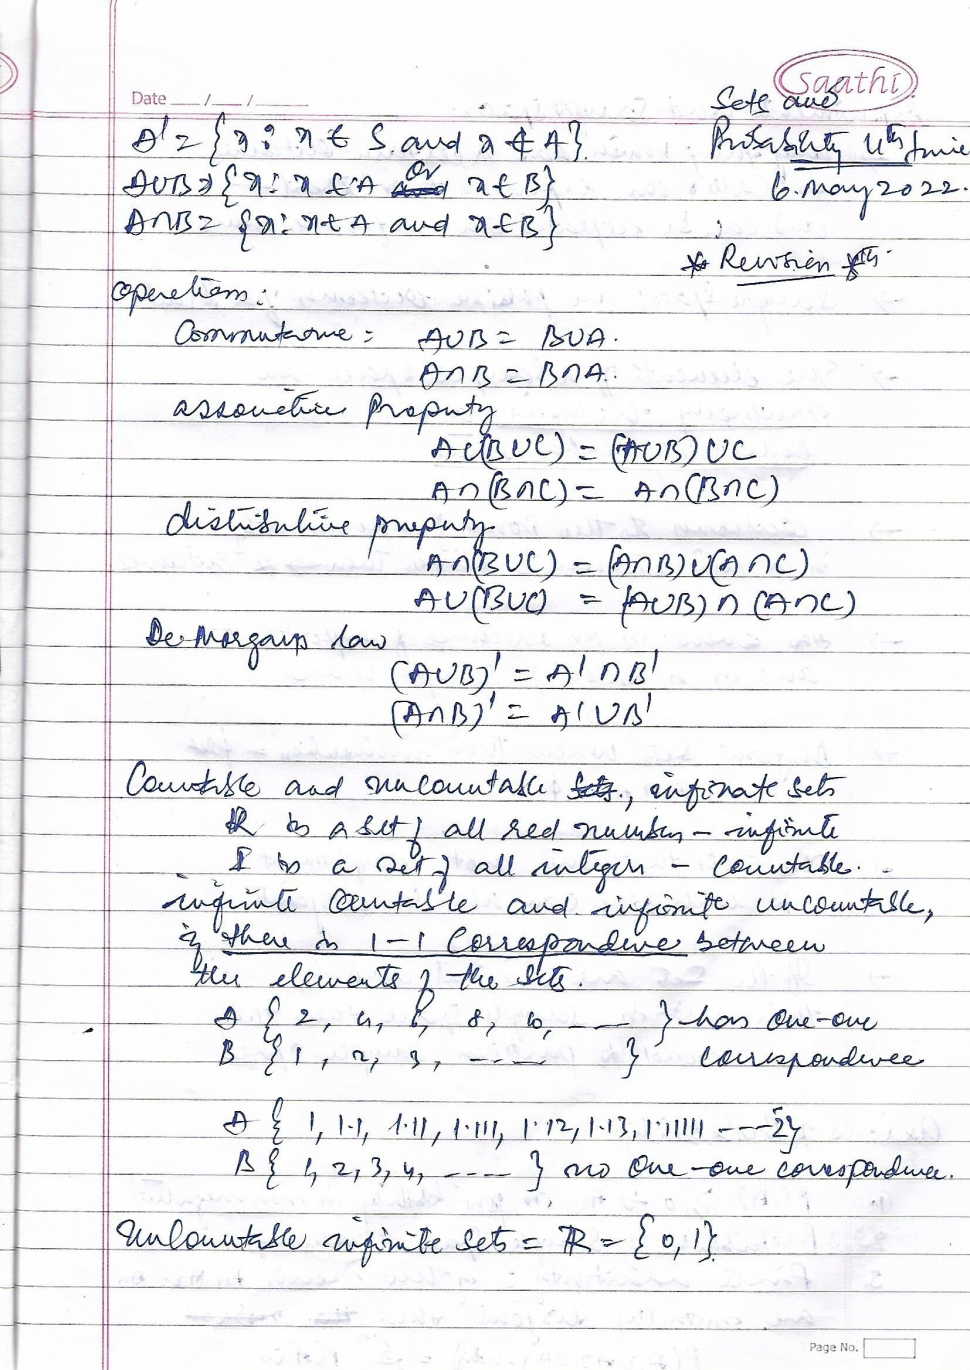 Saathi
Date __/__/____
Sets and
Probability 4th time
6. May 2022.
* Revision *th.
A' = {x : x ∈ S and x ∉ A}.
A∪B = {x : x ∈ A or x ∈ B}
A∩B = {x : x ∈ A and x ∈ B}
operations:
Commutative = A∪B = B∪A.
A∩B = B∩A.
associative Property
A∪(B∪C) = (A∪B)∪C
A∩(B∩C) = A∩(B∩C)
distributive property
A∩(B∪C) = (A∩B)∪(A∩C)
A∪(B∪C) = (A∪B)∩(A∩C)
De-Morgans law
(A∪B)' = A'∩B'
(A∩B)' = A'∪B'
Countable and uncountable sets, infinate sets
R is a set of all real numbers - infinite
I is a set of all integers - Countable.
infinite Countable and infinite uncountable,
if there is 1-1 Correspondence between
the elements of the sets.
A { 2, 4, 6, 8, 10, --- } has one-one
B { 1, 2, 3, ---- } correspondence
A { 1, 1.1, 1.11, 1.111, 1.12, 1.13, 1.11111 ---2}
B { 1, 2, 3, 4, ---- } no one-one correspondence.
Uncountable infinite sets = R = {0, 1}.
Page No.